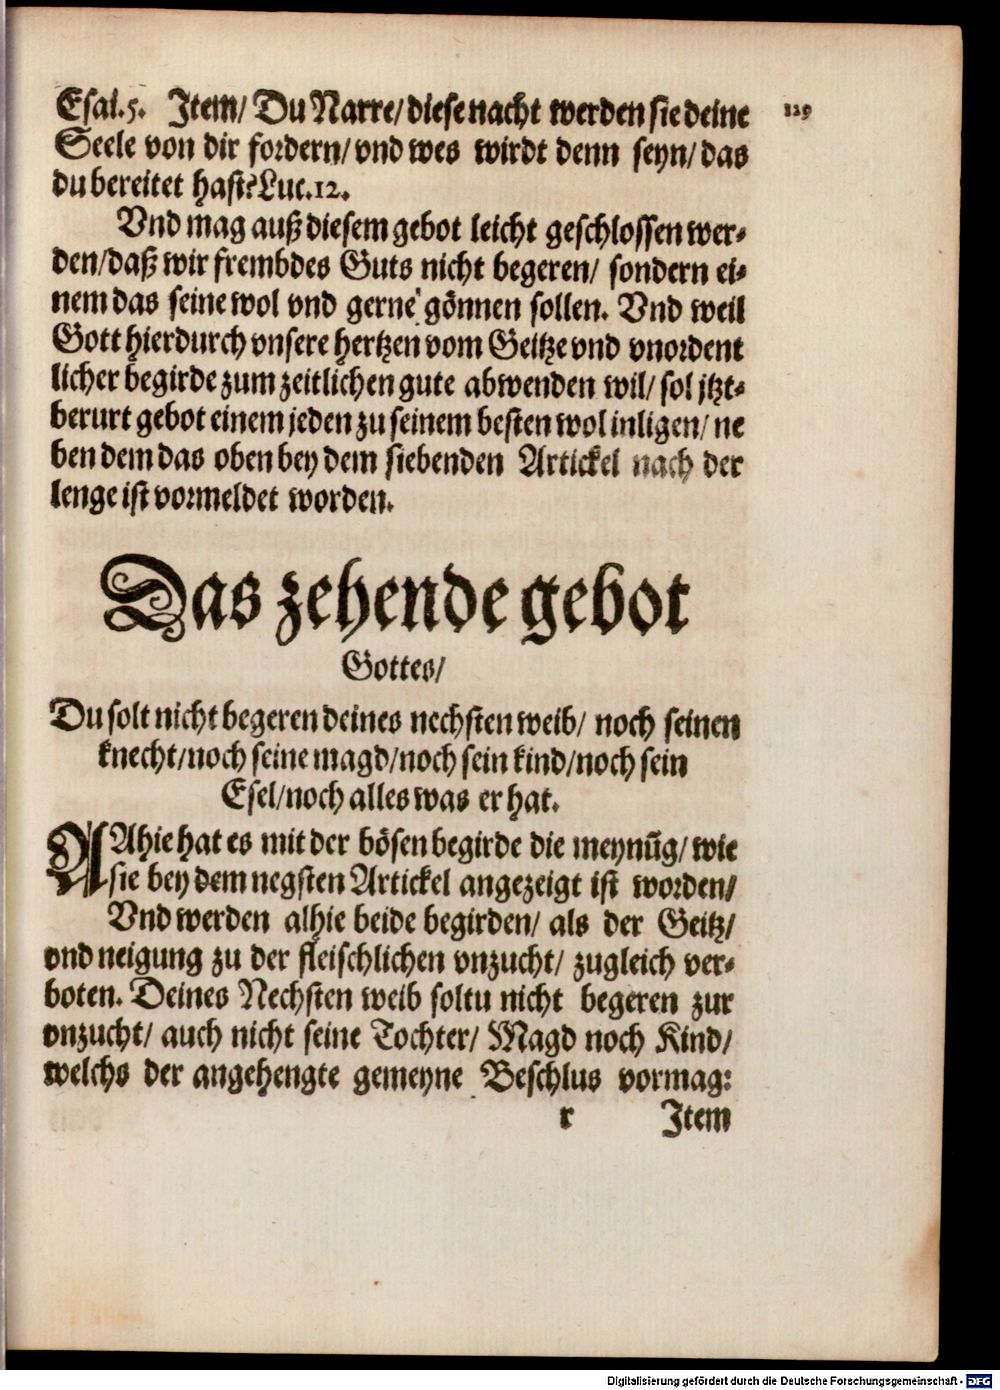 Esai.5. Item/ Du Narre/ diese nacht werden sie deine
Seele von dir fordern/ vnd wes wirdt denn seyn/ das
du bereitet hast? Luc.12.
Vnd mag auß diesem gebot leicht geschlossen wer-
den/ daß wir frembdes Guts nicht begeren/ sondern ei-
nem das seine wol vnd gerne gönnen sollen. Vnd weil
Gott hierdurch vnsere hertzen vom Geitze vnd vnordent
licher begirde zum zeitlichen gute abwenden wil/ sol jtzt-
berurt gebot einem jeden zu seinem besten wol inligen/ ne
ben dem das oben bey dem siebenden Artickel nach der
lenge ist vormeldet worden.
Das zehende gebot
Gottes/
Du solt nicht begeren deines nechsten weib/ noch seinen
knecht/ noch seine magd/ noch sein kind/ noch sein
Esel/ noch alles was er hat.
Ahie hat es mit der bösen begirde die meynũg/ wie
sie bey dem negsten Artickel angezeigt ist worden/
Vnd werden alhie beide begirden/ als der Geitz/
vnd neigung zu der fleischlichen vnzucht/ zugleich ver-
boten. Deines Nechsten weib soltu nicht begeren zur
vnzucht/ auch nicht seine Tochter/ Magd noch Kind/
welchs der angehengte gemeyne Beschlus vormag:
r Item
Digitalisierung gefördert durch die Deutsche Forschungsgemeinschaft - DFG